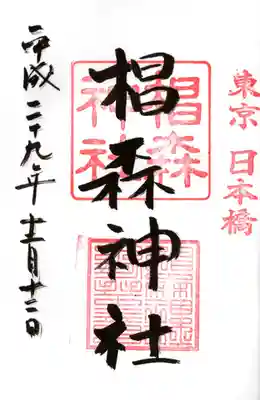 東京 日本橋
椙森神社
椙森
神社
平成二十九年十二月十二日